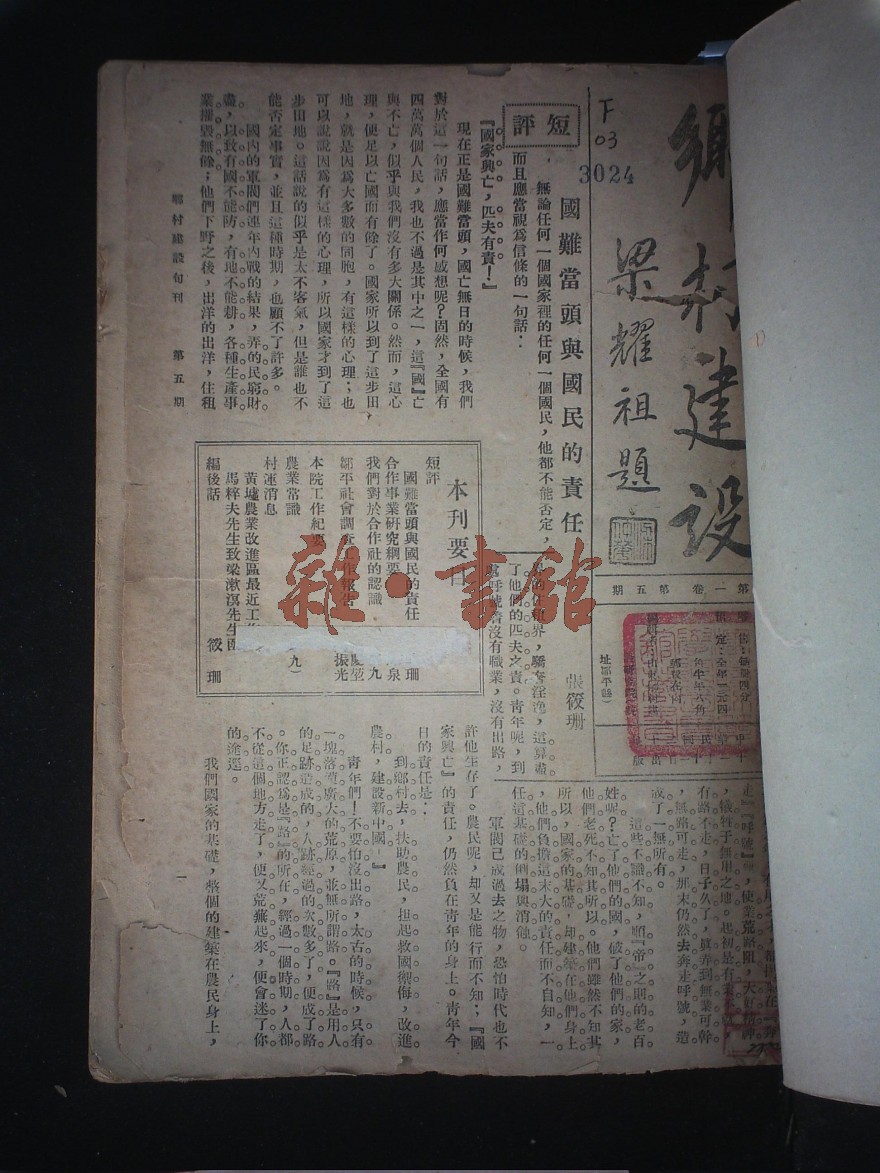 鄉村建设
梁耀祖題
F
03
3024
第一卷 第五期
短評
國難當頭與國民的責任
張筱珊
無論任何一個國家裡的任何一個國民,他都不能否定,
而且應當視爲信條的一句話:
『國家興亡,匹夫有責!』
現在正是國難當頭,國亡無日的時候,我們
對於這一句話,應當作何感想呢?固然,全國有
四萬萬個人民,我也不過是其中之一,這『國』亡
與不亡,似乎與我們沒有多大關係。然而,這心
理,便足以亡國而有餘了。國家所以到了這步田
地,就是因爲大多數的同胞,有這樣的心理;也
可以說因爲有這樣的心理,所以國家才到了這
步田地。這話說的似乎是太不客氣,但是誰也不
能否定事實,並且這種時期,也顧不了許多。
國內的軍閥們連年內戰的結果,弄的民窮財
盡,以致有國不能防,有地不能耕,各種生產事
業摧毀無餘;他們下野之後,出洋的出洋,住租
界的住租界,驕奢淫逸,這算盡
了他們的匹夫之責。青年呢,到
沒有職業,沒有出路,
本刊要目
短評
國難當頭與國民的責任 珊
合作事業研究綱要 泉
我們對於合作社的認識 九
鄒平社會調查工作報告
振光
本院工作紀要
農業常識 九
村運消息
黃墟農業改進區最近工作
馬粹夫先生致梁漱溟先生函
編後話 筱珊
走『呼號』
犧牲于無用之地。起初是有
有路不走,日子久了,弄到無業可幹
,無路可走,那末仍然去奔走呼號,造
成了一無所有。
這些不識不知,順『帝』之則的老百
姓呢?亡了他們的國,破了他們的家,
他們老死不知其所以。他們雖然不知其
所以,國家的基礎,却建築在他們身上
,他們負擔這末大的責任而不自知,一
任這基礎的倒塌與消蝕。
軍閥已成過去之物,恐怕時代也不
許他生存了。農民呢,却又是能行而不知;『國
家興亡』的責任,仍然負在青年的身上。青年今
日的責任是:
到鄉村去,扶助農民,担起救國禦侮,改進
農村,建設新中國。』
青年們!不要怕沒出路,太古的時候,只有
一塊落漠廣大的荒原,並無所謂路。『路』是用人
的足跡造成的,人跡經過的次數多了,便成了路
。你正認爲是『路』的所在,經過一個時期,人都
不從這個地方走了,便又荒蕪起來,便會迷了你
的途逕。
我們國家的基礎,整個的建築在農民身上,
鄉村建設旬刊 第五期
一
雜·書館